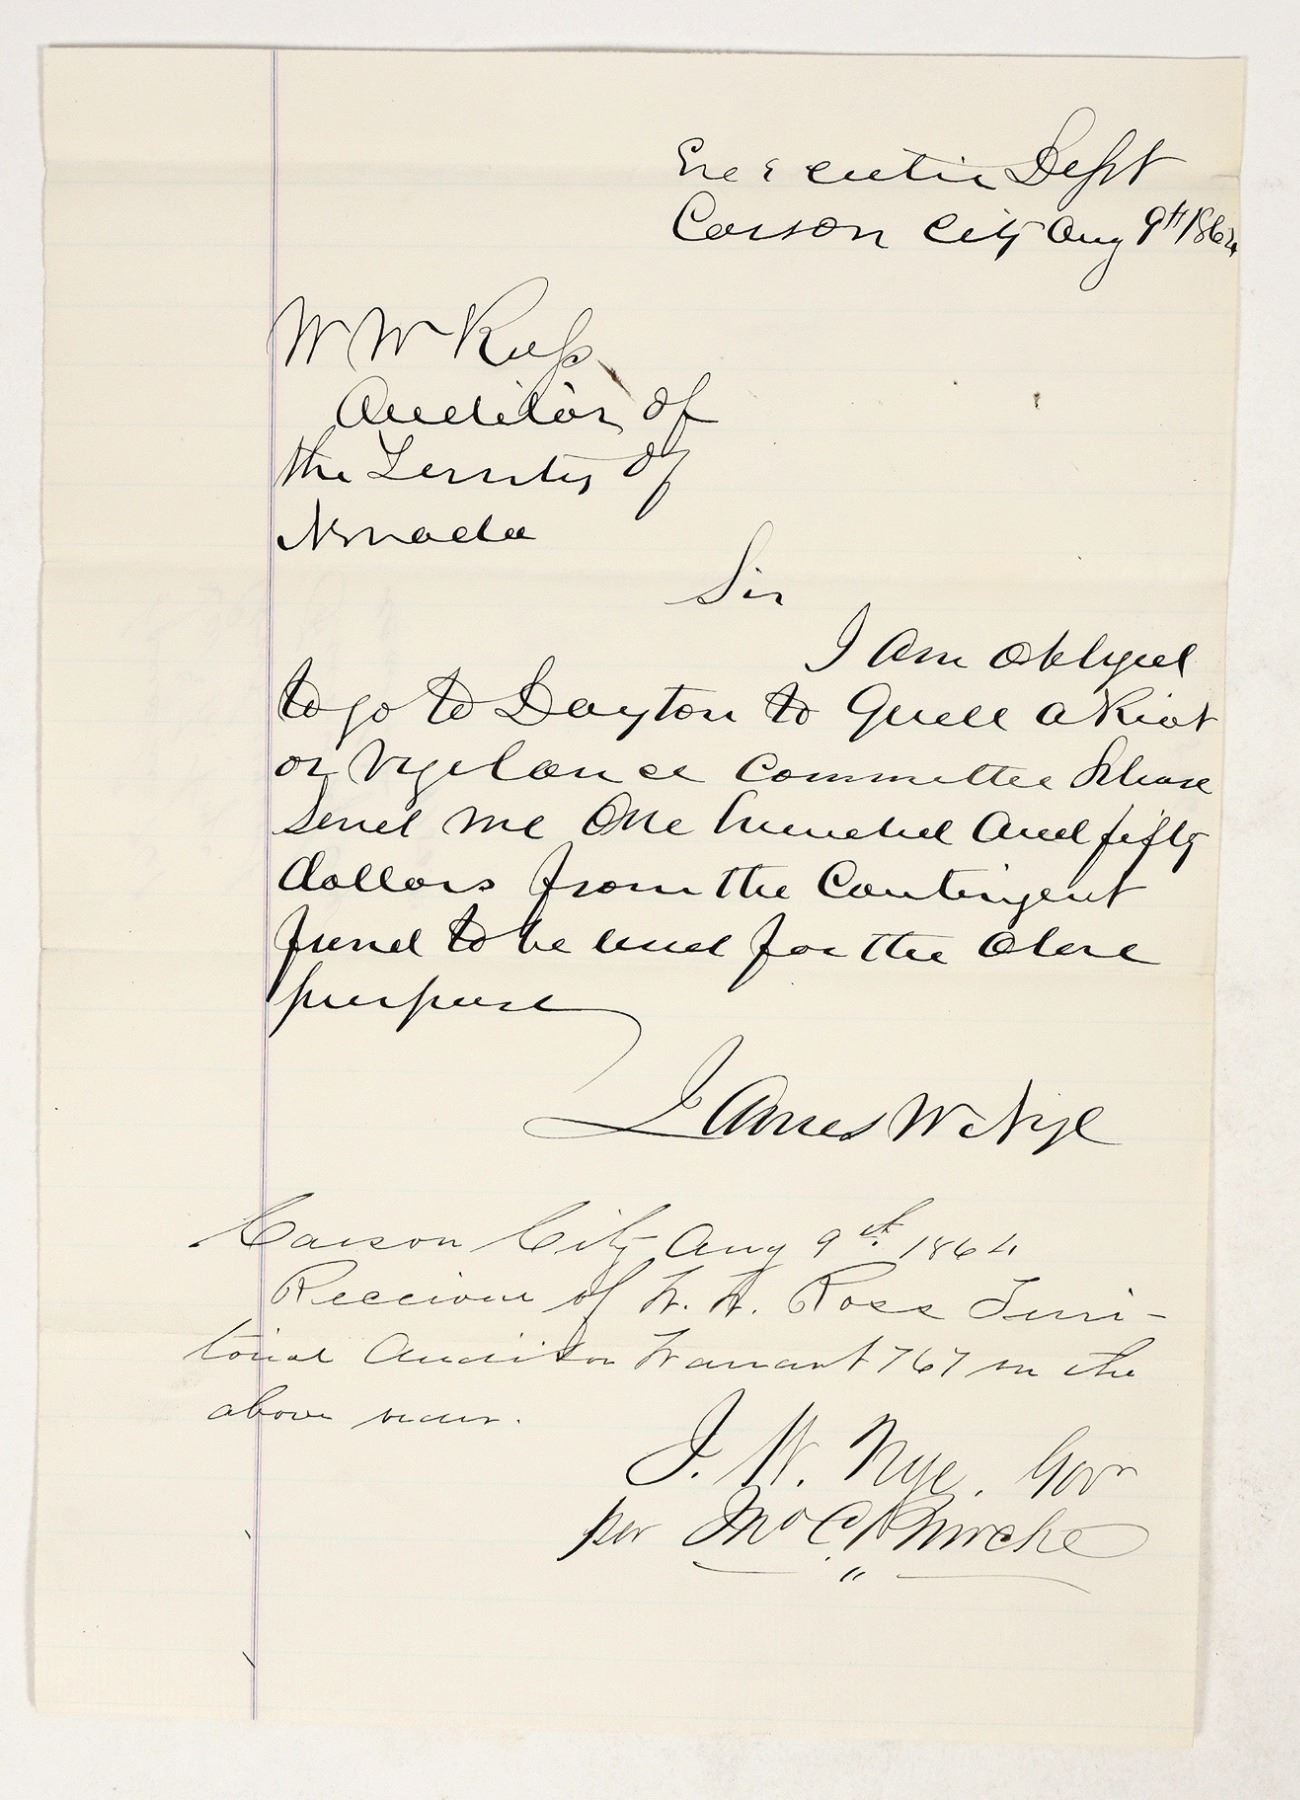 Executive Dept
Carson City Aug 9th 1864
W W Ross
Auditor of
the Territy of
Nevada
Sir
I am obliged
to go to Dayton to Quell a Riot
or vigilance committee Please
send me One hundred and fifty
dollars from the Contingent
fund to be used for the above
purpose
James W Nye
Carson City Aug 9th 1864
Received of W. W. Ross Terri-
torial Auditor Warrant 767 on the
above order.
J. W. Nye. Govr
per Jno C